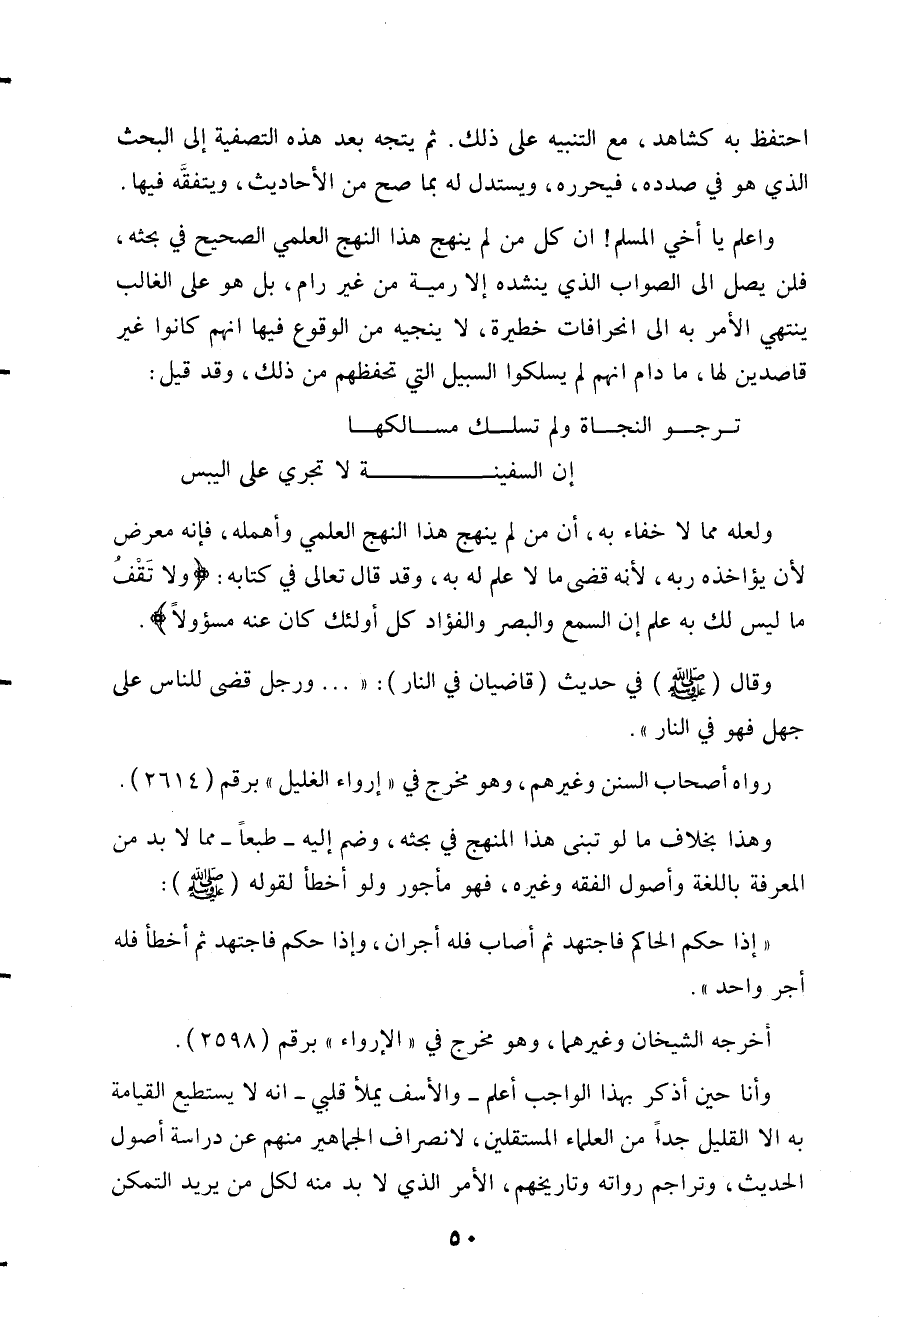 احتفظ به كشاهد ، مع التنبيه على ذلك. ثم يتجه بعد هذه التصفية إلى البحث
الذي هو في صدده، فيحرره، ويستدل له بما صح من الأحاديث، ويتفقَّه فيها.
واعلم يا أخي المسلم! ان كل من لم ينهج هذا النهج العلمي الصحيح في بحثه،
فلن يصل الى الصواب الذي ينشده إلا رميـة من غير رام، بل هو على الغالب
ينتهي الأمر به الى انحرافات خطيرة، لا ينجيه من الوقوع فيها انهم كانوا غير
قاصدين لها، ما دام انهم لم يسلكوا السبيل التي تحفظهم من ذلك، وقد قيل:
تـرجـو النجـاة ولم تسلـك مسـالكهـا
إن السفينـــــــة لا تجري على اليبس
ولعله مما لا خفاء به، أن من لم ينهج هذا النهج العلمي وأهمله، فإنه معرض
لأن يؤاخذه ربه، لأنه قضى ما لا علم له به، وقد قال تعالى في كتابه: ﴿ولا تَقْفُ
ما ليس لك به علم إن السمع والبصر والفؤاد كل أولئك كان عنه مسؤولاً﴾.
وقال (ﷺ) في حديث (قاضيان في النار): «... ورجل قضى للناس على
جهل فهو في النار».
رواه أصحاب السنن وغيرهم، وهو مخرج في «إرواء الغليل» برقم (٢٦١٤).
وهذا بخلاف ما لو تبنى هذا المنهج في بحثه، وضم إليه - طبعاً - مما لا بد من
المعرفة باللغة وأصول الفقه وغيره، فهو مأجور ولو أخطأ لقوله (ﷺ):
«إذا حكم الحاكم فاجتهد ثم أصاب فله أجران، وإذا حكم فاجتهد ثم أخطأ فله
أجر واحد».
أخرجه الشيخان وغيرهما، وهو مخرج في «الإرواء» برقم (٢٥٩٨).
وأنا حين أذكر بهذا الواجب أعلم - والأسف يملأ قلبي - انه لا يستطيع القيامة
به الا القليل جداً من العلماء المستقلين، لانصراف الجماهير منهم عن دراسة أصول
الحديث، وتراجم رواته وتاريخهم، الأمر الذي لا بد منه لكل من يريد التمكن
٥٠